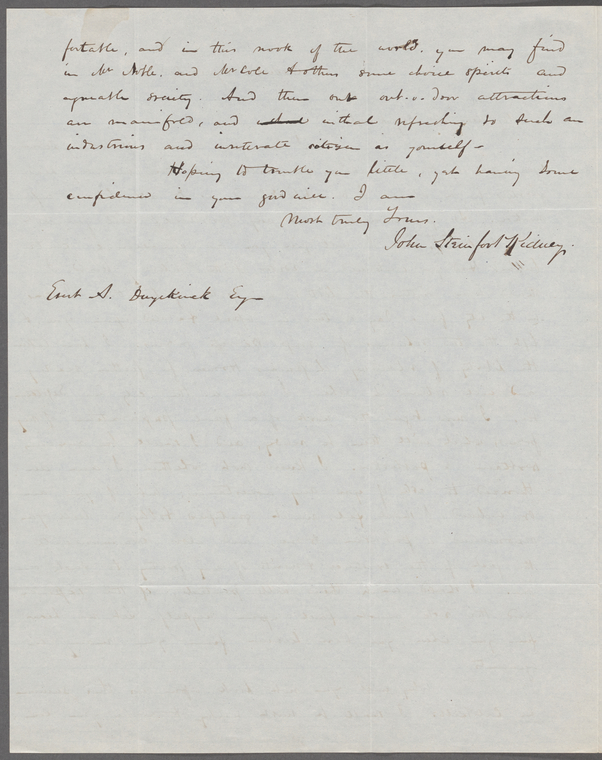 fortable, and in this nook of the world. you may find
in Mr Noble. and Mr Cole & others some choice spirits and
agreable society. And then our out-o-door attractions
are manifold, and withal refreshing to such an
industrious and inveterate citizen as yourself-
Hoping to trouble you little, yet having some
confidence in your good will. I am
Most truly Yours.
John Steinfort Kidney.
Evert A. Duyckinck Esq